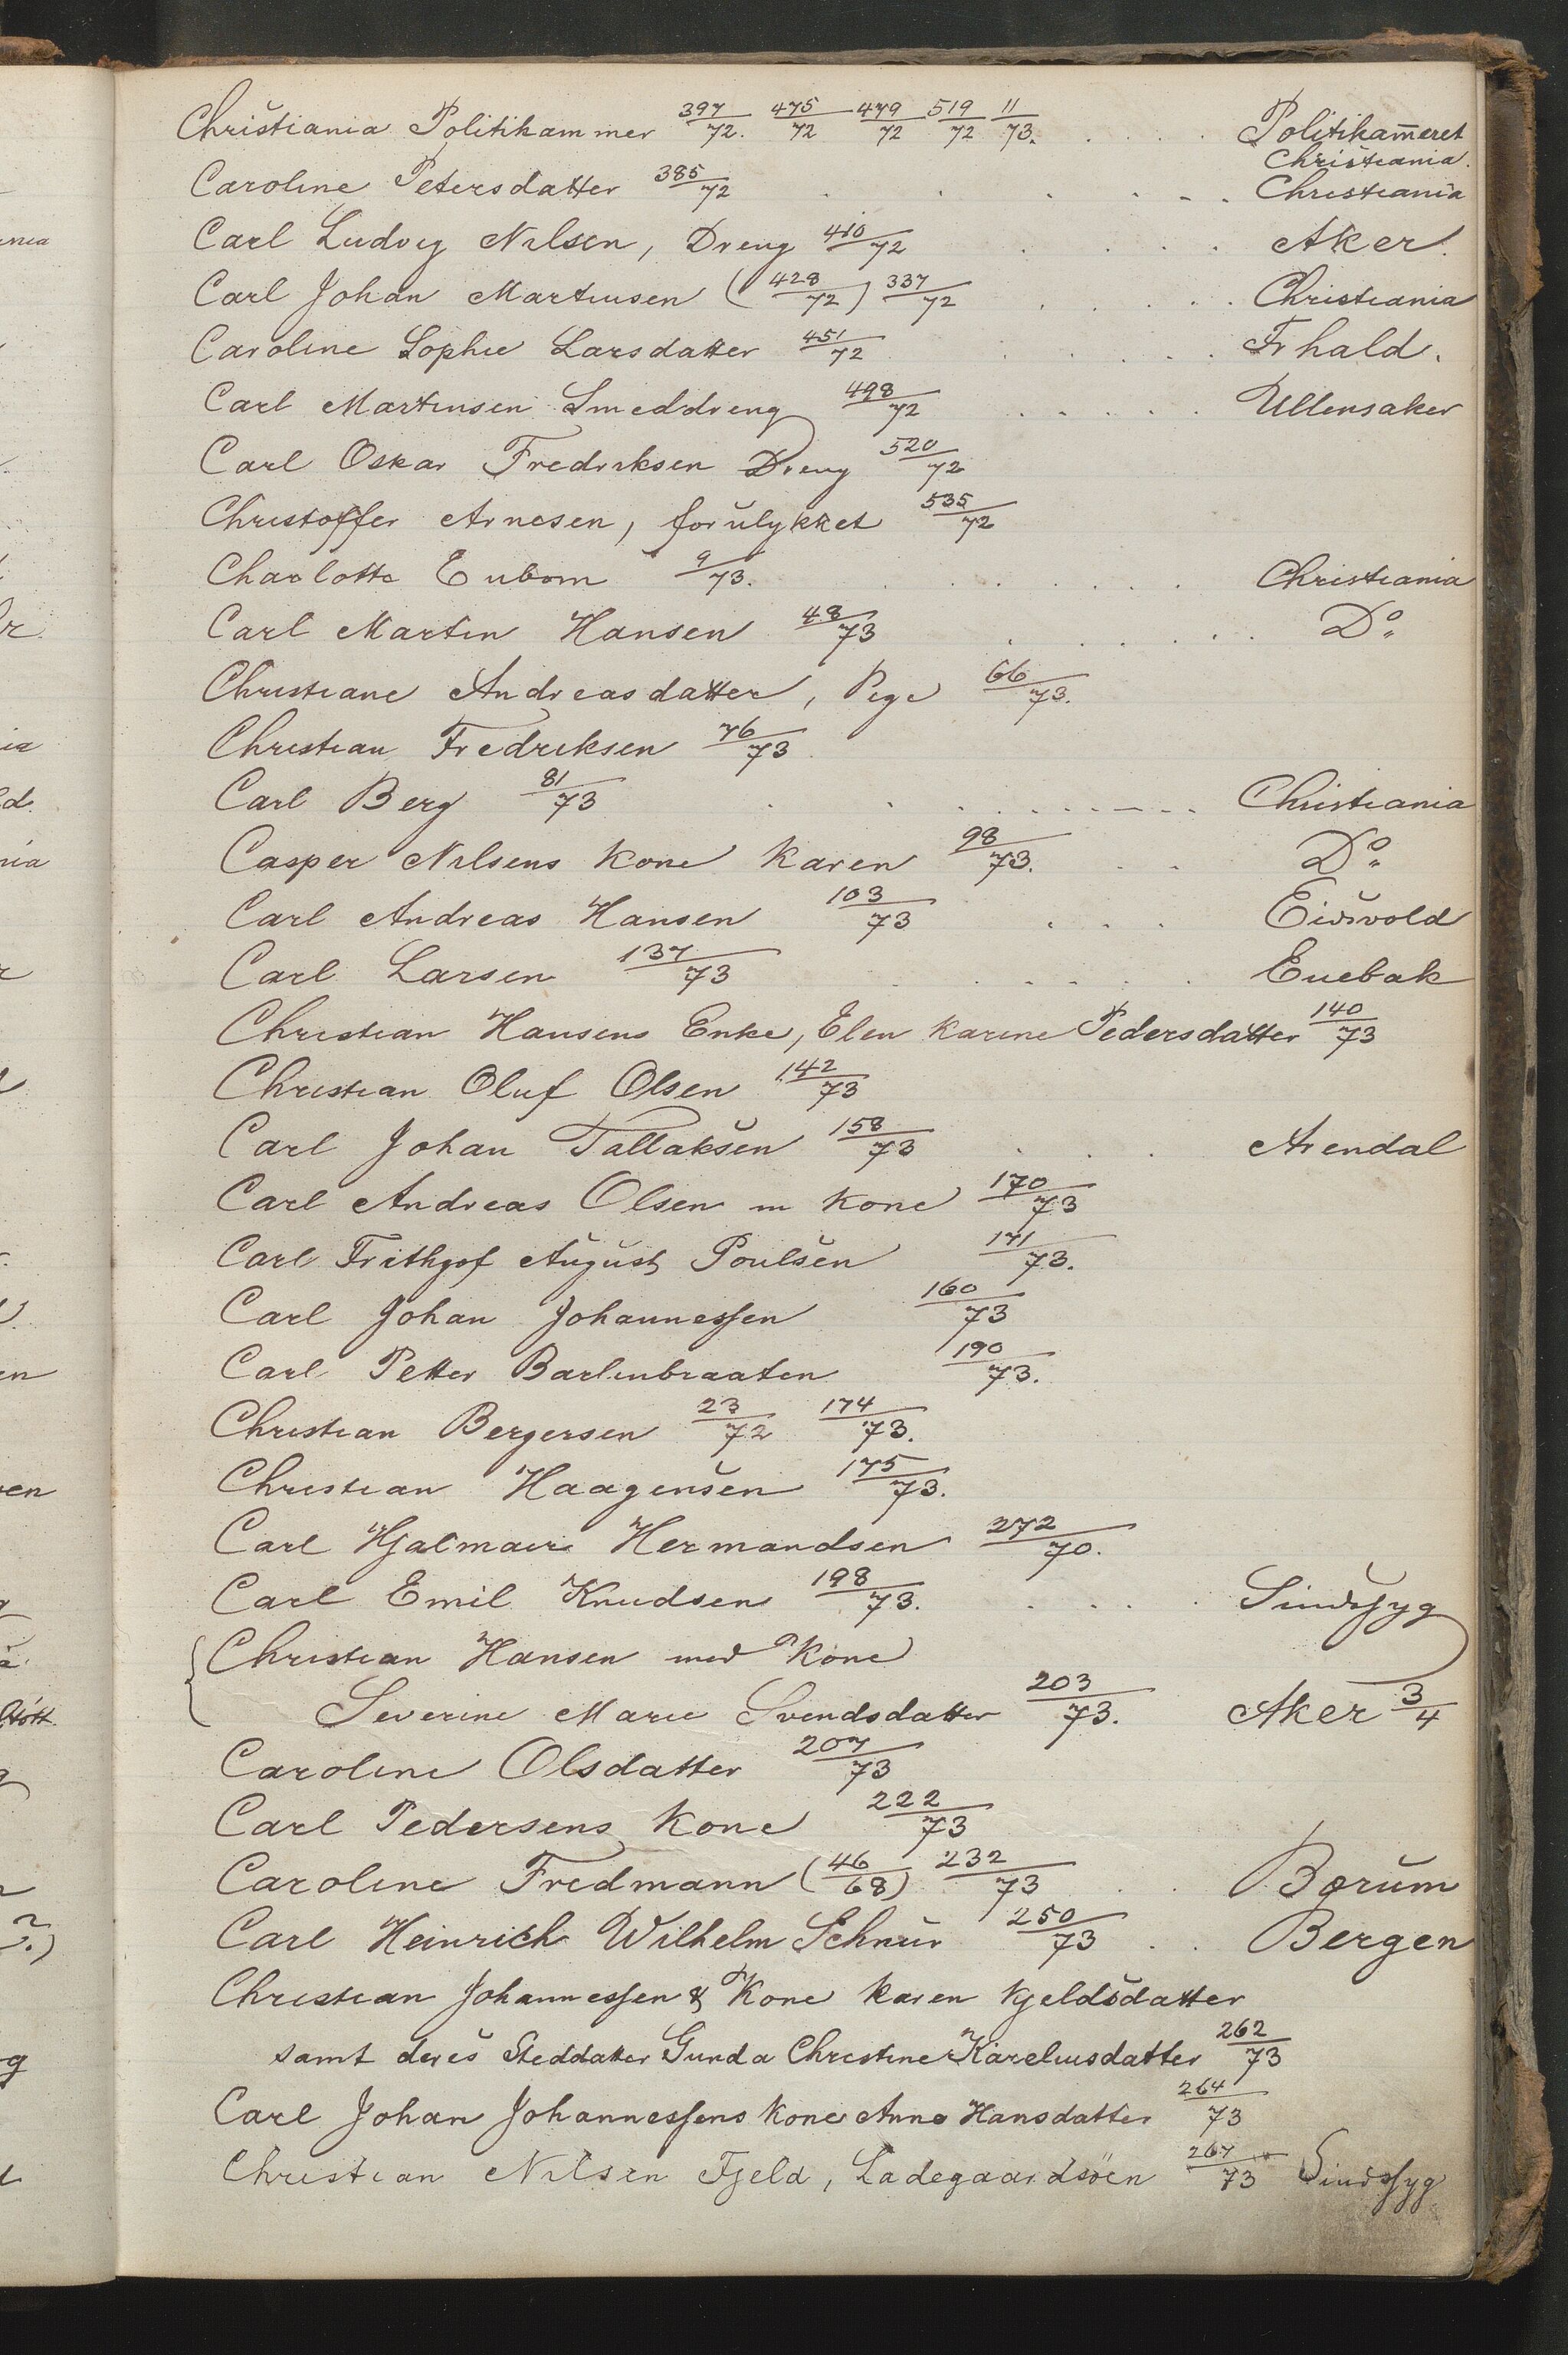 Christiania Politikammer 397/72. 475/72 479/72 519/72 11/73. . . . Politikam̄eret Christiania.
Caroline Petersdatter 385/72 . . . . . . Christiania
Carl Ludvig Nilsen, Dreng 410/72 . . . . Aker.
Carl Johan Martinsen (428/72) 337/72 . . . . . Christiania
Caroline Sophie Larsdatter 451/72 . . . . . Frhald.
Carl Martinsen Smeddreng 498/72 . . . . . Ullensaker
Carl Oskar Fredriksen Dreng 520/72
Christoffer Arnesen, forulykket 535/72
Charlotte Eubom 9/73. . . . . . . Christiania
Carl Martin Hansen 48/73 . . . . . . Do.
Christiane Andreasdatter, Pige 66/73.
Christian Fredriksen 76/73
Carl Berg 81/73 . . . . . . . . Christiania
Casper Nilsens Kone Karen 98/73. . . Do.
Carl Andreas Hansen 103/73 . . . Eidsvold
Carl Larsen 137/73 . . . . . . Enebak
Christian Hansens Enke, Elen Karine Pedersdatter 140/73
Christian Oluf Olsen 142/73
Carl Johan Tallaksen 158/73 . . . Arendal
Carl Andreas Olsen m Kone 170/73
Carl Frithgof August Poulsen 171/73.
Carl Johan Johannessen 160/73
Carl Petter Barlinbraaten 190/73.
Christian Bergersen 23/72 174/73.
Christian Haagensen 175/73.
Carl Hjalmar Hermandsen 272/70.
Carl Emil Knudsen 198/73. . . . . Sindssyg
Christian Hansen med Kone
Severine Marie Svendsdatter 203/73. Aker 3/4
Caroline Olsdatter 207/73
Carl Pedersens Kone 222/73
Caroline Fredmann (46/68) 232/73 . . Bærum
Carl Heinrich Wilhelm Schnur 250/73 . . Bergen
Christian Johannessen & Kone Karen Kjeldsdatter
samt deres Steddatter Gunda Christine Kareliusdatter 262/73
Carl Johan Johannessens Kone Anne Hansdatter 264/73
Christian Nilsen Fjeld, Ladegaardsöen 267/73 Sindssyg